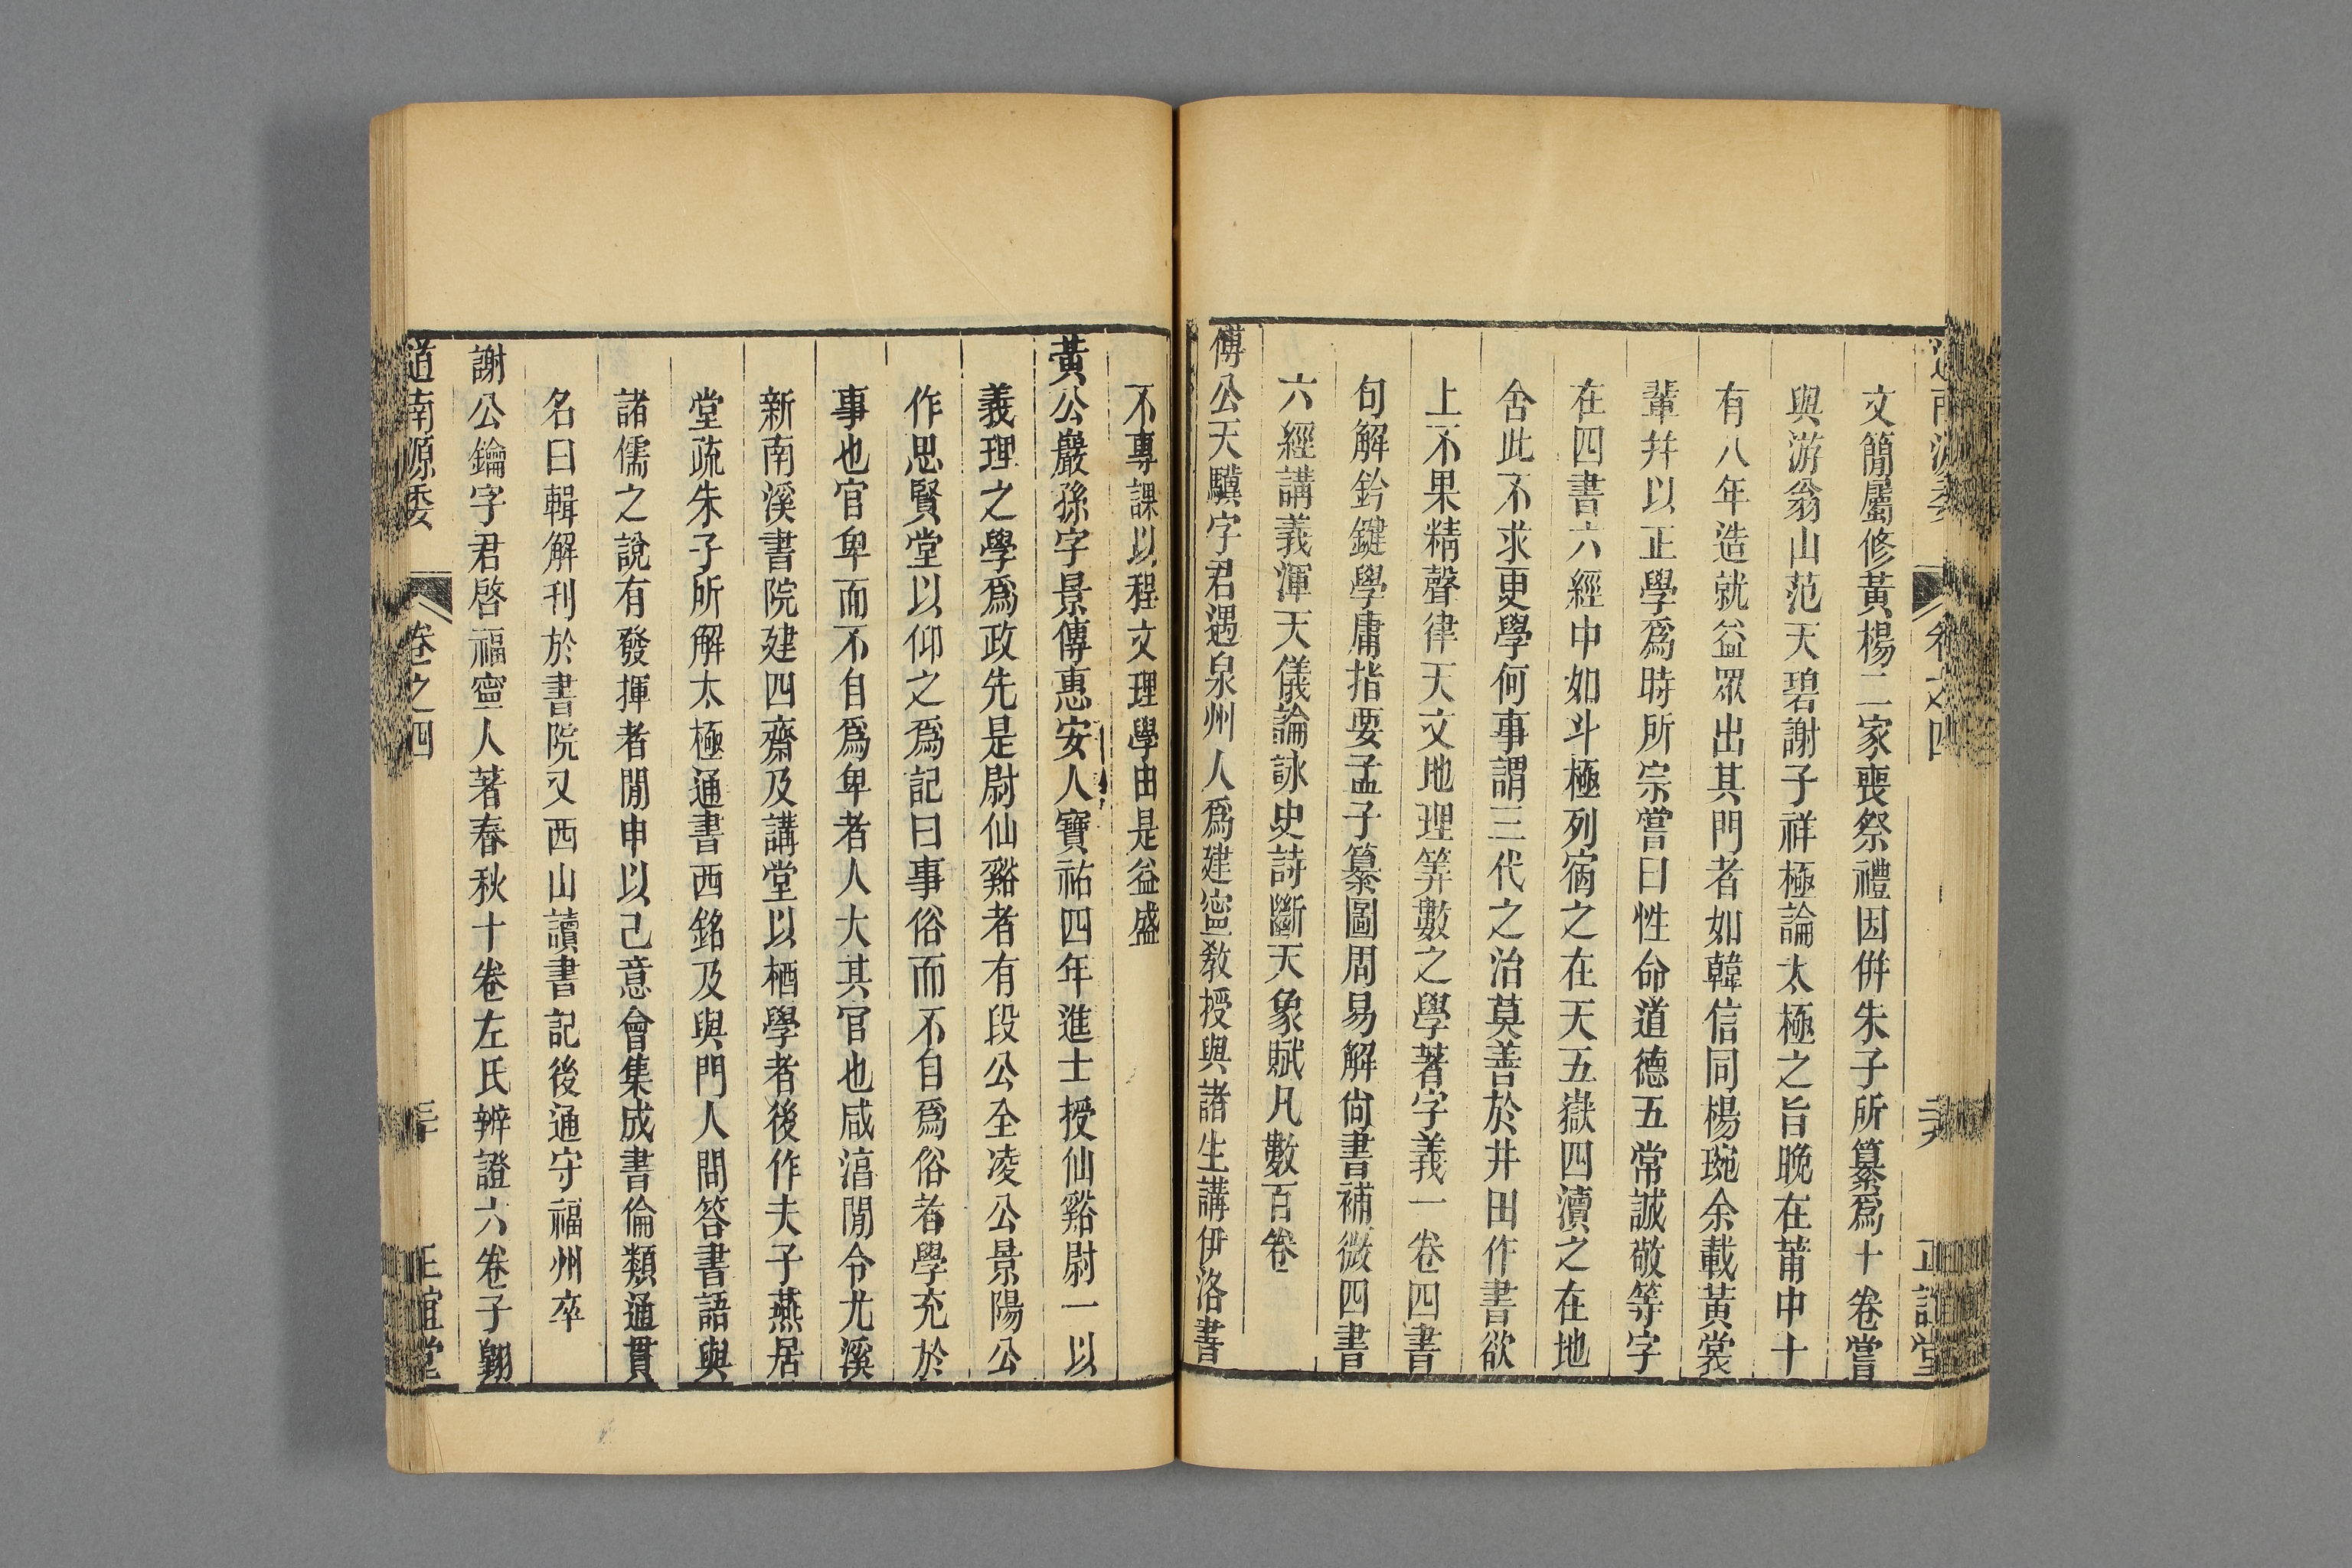 道南源委 卷之四 二十九 正誼堂
文簡屬修黃楊二家喪祭禮因併朱子所纂爲十卷嘗
與游翁山范天碧謝子祥極論太極之旨晚在莆中十
有八年造就益眾出其門者如韓信同楊琬余載黃裳
輩并以正學爲時所宗嘗曰性命道德五常誠敬等字
在四書六經中如斗極列宿之在天五嶽四瀆之在地
舍此不求更學何事謂三代之治莫善於井田作書欲
上不果精聲律天文地理筭數之學著字義一卷四書
句解鈐鍵學庸指要孟子纂圖周易解尙書補微四書
六經講義渾天儀論詠史詩斷天象賦凡數百卷
傅公天驥字君遇泉州人爲建寧教授與諸生講伊洛書
不專課以程文理學由是益盛
黃公巖孫字景傳惠安人寶祐四年進士授仙谿尉一以
義理之學爲政先是尉仙谿者有段公全凌公景陽公
作思賢堂以仰之爲記曰事俗而不自爲俗者學充於
事也官卑而不自爲卑者人大其官也咸淳閒令尤溪
新南溪書院建四齋及講堂以栖學者後作夫子燕居
堂疏朱子所解太極通書西銘及與門人問答書語與
諸儒之說有發揮者閒申以己意會集成書倫類通貫
名曰輯解刊於書院又西山讀書記後通守福州卒
謝公鑰字君啓福寧人著春秋十卷左氏辨證六卷子翱
道南源委 卷之四 三十 正誼堂